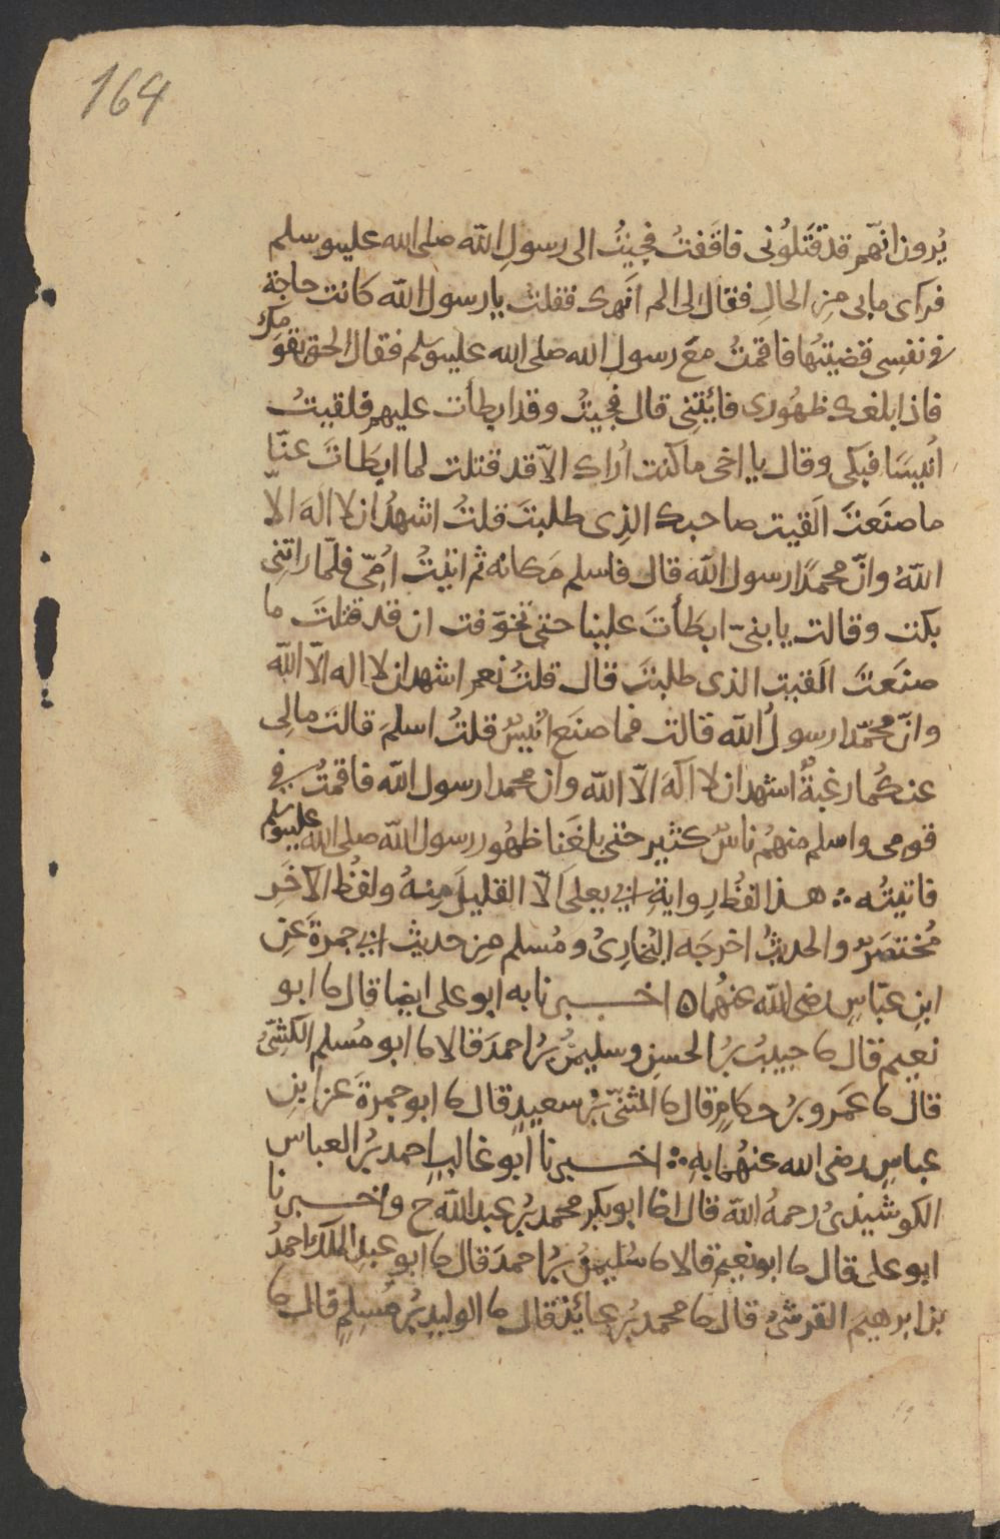 164
يُرون انّهم قد قَتَلُونى فافَقتُ فجيتُ الى رسولِ الله صلى الله عليه وسلم
فرأى مابى مِن الحالِ فقال لى الم انهك فقلتُ يا رسول الله كانت حاجة
فى نفسِى قضيتُها فاقمتُ معَ رسولِ الله صلى الله عليه وسلم فقال الحق بقومِك
فاذا بلغك ظهُورى فائتِنِى قال فجيتُ وقد ابطأت عليهم فلقيتُ
اُنيسَا فبكى وقال يا اخى ما كنت اُراك الاّ قد قتلت لما ابطَاتَ عنّا
ما صنَعتَ اَلقيت صاحبك الذِى طلبتَ قلتُ اشهدُ ان لا اله الاّ
اللهُ وانّ محمدًا رسول الله قال فاسلم مَكانه ثم اتيتُ اُمّى فلمّا راتنِى
بكت وقالت يا بنىّ ابطَأتَ علينا حتى تخوّفت ان قد قتلتَ ما
صنَعتَ اَلقيت الذى طلبتَ قال قلتُ نعم اشهد ان لا اله الاّ الله
وانّ محمّدا رسولُ الله قالت فما صنَع اُنيسٌ قلتُ اسلمَ قالت مالِى
عنكُما رغبةٌ اشهد ان لا اله الاّ الله وان محمدا رسول الله فاقمتُ فى
قومى واسلم منهُم ناسٌ كثير حتى بلغَنا ظهُور رسول الله صلى الله عليه وسلم
فاتيتُه ∴ هذا لفظُ رِوايةِ ابى يعلى اَلاّ القليلَ مِنهُ ولفظُ الآخَر
مُختصَرٌ والحديثُ اخرجَه البُخارِىُ ومُسلم مِن حديث ابى جمرةَ عَن
ابنِ عبّاسٍ رضى الله عنهُما ه اخـــبرنا به ابو على ايضا قال نا ابو
نعيم قال نا حبيبُ بنُ الحسنِ وسليمنُ بنُ احمدَ قالا نا ابو مُسلم الكَشِّىُّ
قال نا عَمرو بنُ حكامٍ قال نا المثنّى بنُ سعيدٍ قال نا ابو جمرةَ عن ابنِ
عباسٍ رضى الله عنهُما بهِ ∴ اخـــبرنا ابو غالبٍ احمد بنُ العباس
الكوشيذىُ رحمهُ الله قال انا ابو بكر محمد بنُ عبد الله ح واخـــبرنا
ابو على قال نا ابو نعيمٍ قالا نا سُليمنُ بنُ احمدَ قال نا ابو عبدِ الملك احمدُ
بن ابرهيم القرشىُ قال نا محمد بنُ عائذٍ قال نا الوليد بنُ مُسلِمٍ قال نا